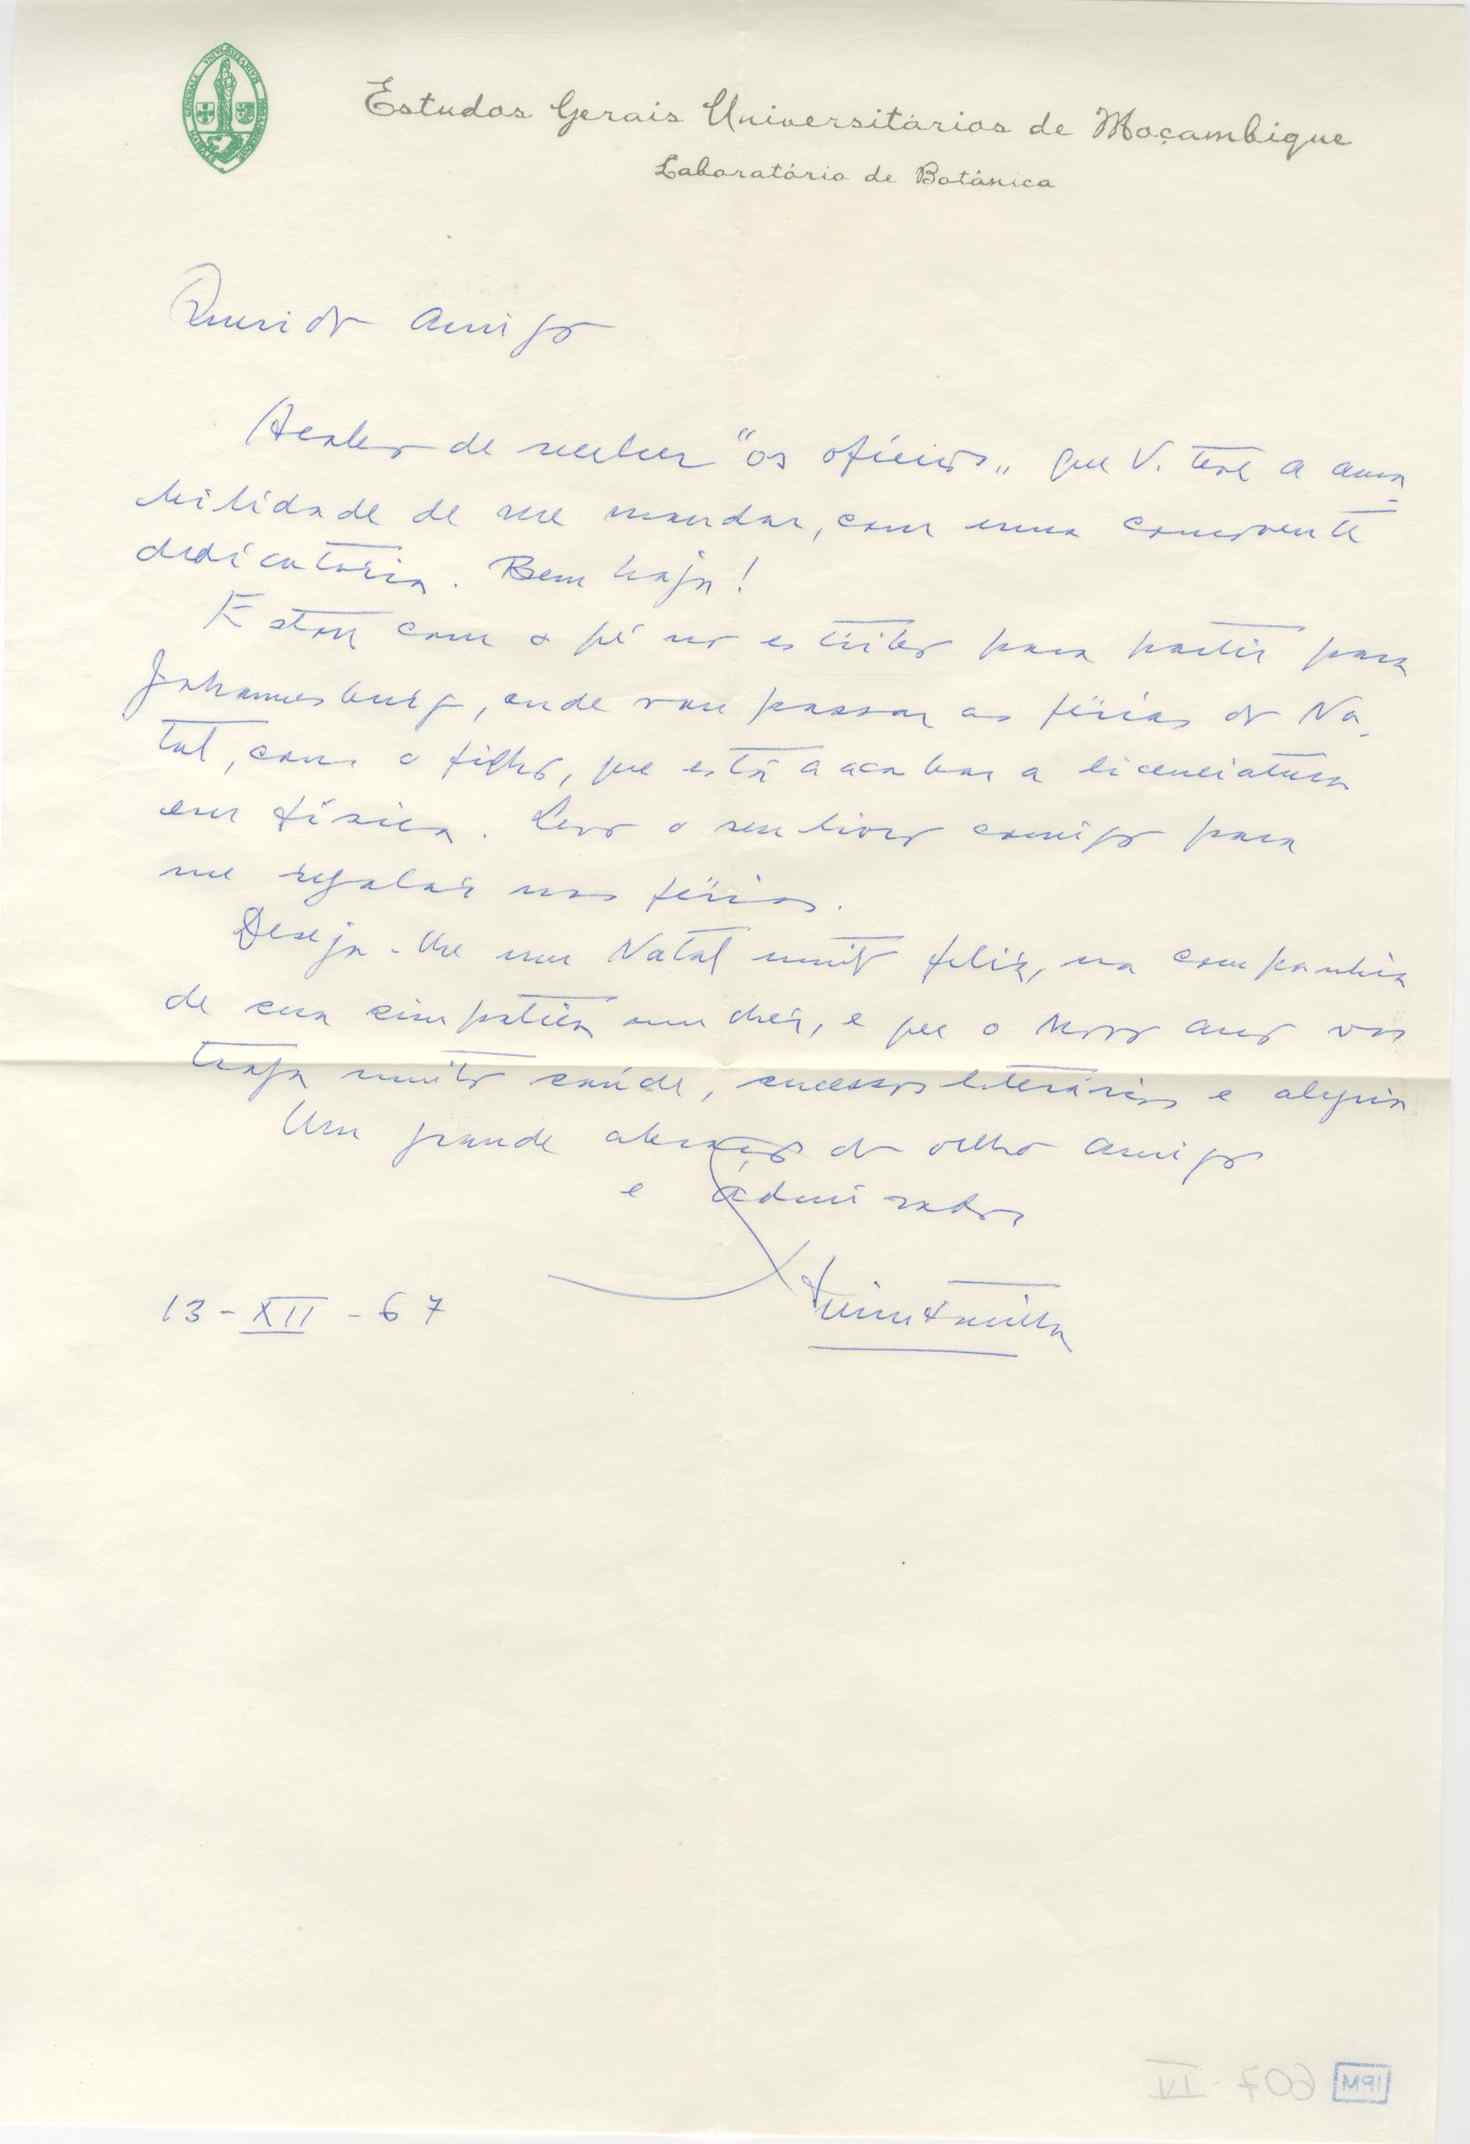 Estudos Gerais Universitários de Moçambique
Laboratório de Botânica
Querido amigo
Acabo de receber "os ofícios„ que V. teve a ama
bilidade de me mandar, com uma comovente
dedicatória. Bem haja!
Estou com o pé no estribo para partir para
Johannesburg, onde vou passar as férias do Na-
tal, com o filho, que está a acabar a licenciatura
em física. Levo o seu livro comigo para
me regalar nas férias.
Deseja-lhe um Natal muito feliz, na companhia
de sua simpática mulher, e que o Novo ano vos
traga muita saúde, sucessos literários e alegria
Um grande abraço do velho amigo
e admirador
13-XII-67
Quintanilha
IPM 607-IV